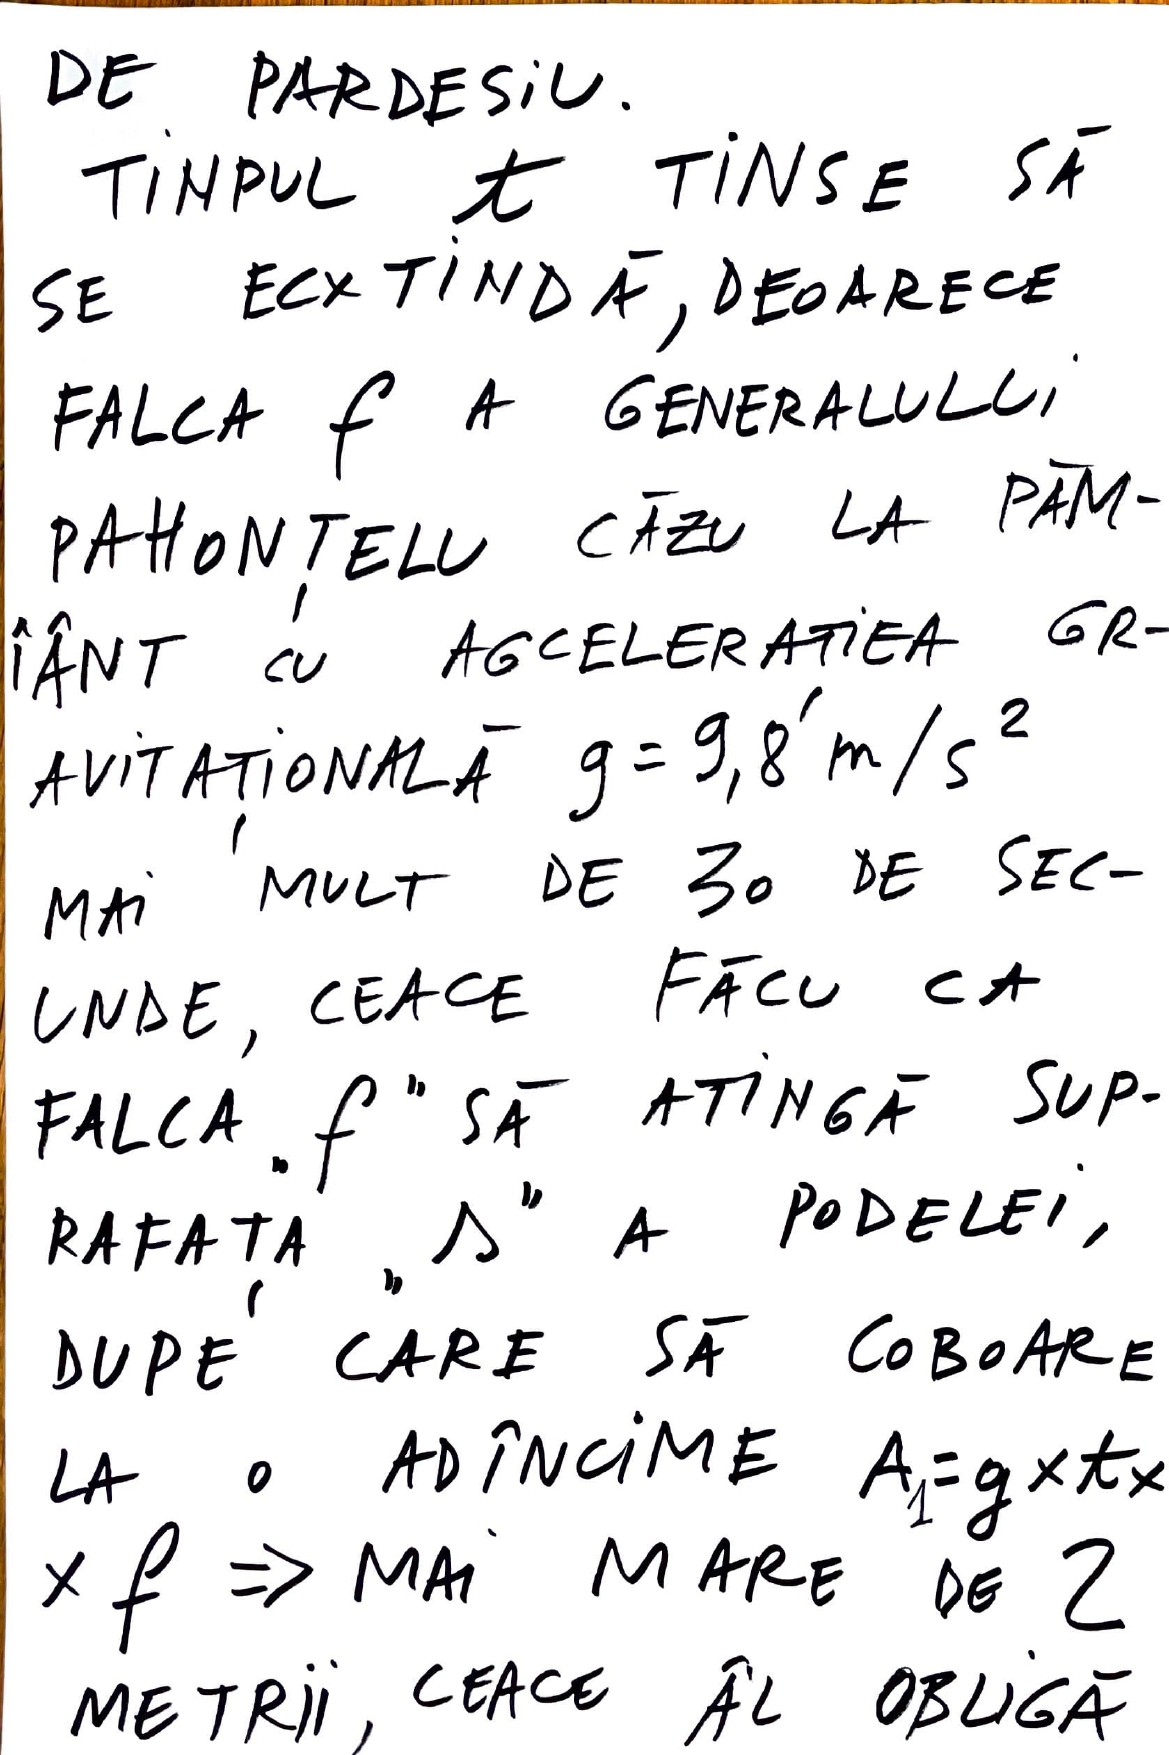 DE PARDESiU.
TiMPUL t TiNSE SĂ
SE ECXTiNDĂ, DEOARECE
FALCA f A GENERALULUi
PAHONȚELU CĂZU LA PĂM-
ÎÂNT CU AGCELERATiEA GR-
AViTAȚiONALĂ g = 9,8 m/s²
MAi MULT DE 30 DE SEC-
UNDE, CEACE FĂCU CA
FALCA „f” SĂ ATiNGĂ SUP-
RAFAȚA „s” A PODELEi,
DUPE CARE SĂ COBOARE
LA O ADÎNCiME A₁=g x t x
x f => MAi MARE DE 2
METRii, CEACE ÂL OBLiGĂ